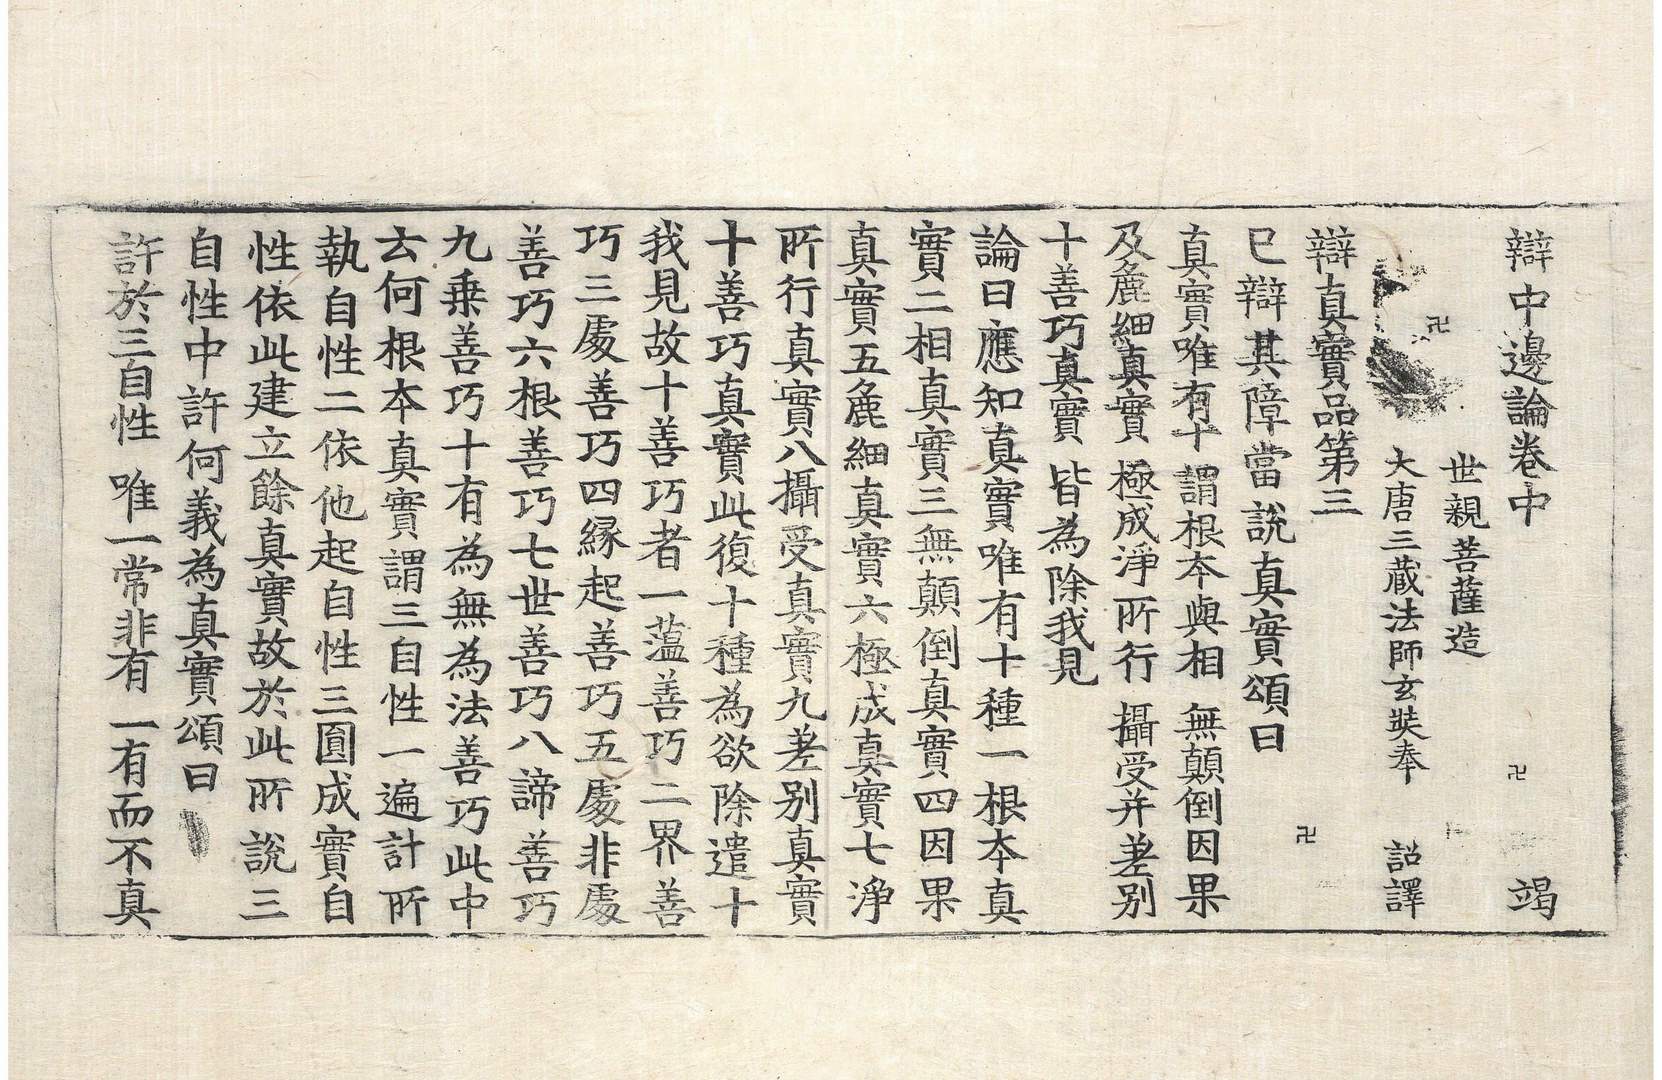 辯中邊論卷中 竭
世親菩薩造
大唐三藏法師玄奘奉 詔譯
辯真實品第三
已辯其障當說真實頌曰
真實唯有十 謂根本與相 無顛倒因果
及麁細真實 極成淨所行 攝受并差別
十善巧真實 皆為除我見
論曰應知真實唯有十種一根本真
實二相真實三無顛倒真實四因果
真實五麁細真實六極成真實七淨
所行真實八攝受真實九差别真實
十善巧真實此復十種為欲除遣十
我見故十善巧者一蘊善巧二界善
巧三處善巧四緣起善巧五處非處
善巧六根善巧七世善巧八諦善巧
九乗善巧十有為無為法善巧此中
云何根本真實謂三自性一遍計所
執自性二依他起自性三圓成實自
性依此建立餘真實故於此所說三
自性中許何義為真實頌曰
許於三自性 唯一常非有 一有而不真